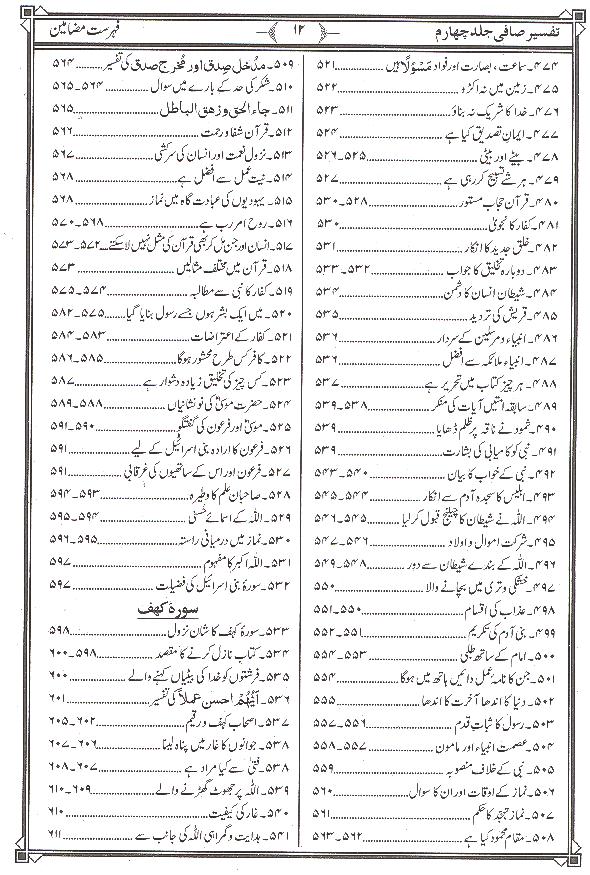 تفسیر صافی جلد چہارم
۱۲
فہرست مضامین
۴۷۴۔ سماعت، بصارت اور فواد مَسْؤلًا ہیں ۵۲۱
۴۷۵۔ زمین میں نہ اکڑو ۵۲۲
۴۷۶۔ خدا کا شریک نہ بناؤ ۵۲۳
۴۷۷۔ ایمان تصدیق کیا ہے ۵۲۴
۴۷۸۔ بیٹے اور بیٹی ۵۲۵۔۵۲۶
۴۷۹۔ ہر شے تسبیح کر رہی ہے ۵۲۷
۴۸۰۔ قرآن حجاب مستور ۵۲۸۔۵۳۰
۴۸۱۔ کفار کا نجویٰ ۵۳۰
۴۸۲۔ خلق جدید کا انکار ۵۳۱
۴۸۳۔ دوبارہ تخلیق کا جواب ۵۳۲۔۵۳۳
۴۸۴۔ شیطان انسان کا دشمن ۵۳۴
۴۸۵۔ قریش کی تردید ۵۳۵
۴۸۶۔ انبیاء و مرسلین کے سردار ۵۳۶
۴۸۷۔ انبیاء ملائکہ سے افضل ۵۳۶
۴۸۸۔ ہر چیز کتاب میں تحریر ہے ۵۳۷
۴۸۹۔ سابقہ امتیں آیات کی منکر ۵۳۸۔۵۳۹
۴۹۰۔ ثمود نے ناقہ پر ظلم ڈھایا ۵۳۹
۴۹۱۔ نبی کو کامیابی کی بشارت ۵۳۹
۴۹۲۔ نبی کے خواب کا بیان ۵۴۰۔۵۴۳
۴۹۳۔ ابلیس کا سجدہ آدم سے انکار ۵۴۴۔۵۴۵
۴۹۴۔ اللہ نے شیطان کا چیلنج قبول کرلیا ۵۴۵۔۵۴۶
۴۹۵۔ شرکت اموال و اولاد ۵۴۶۔۵۴۷
۴۹۶۔ اللہ کے بندے شیطان سے دور ۵۴۸۔۵۴۹
۴۹۷۔ خشکی و تری میں بچانے والا ۵۵۰
۴۹۸۔ عذاب کی اقسام ۵۵۰۔۵۵۱
۴۹۹۔ بنی آدم کی تکریم ۵۵۱۔۵۵۲
۵۰۰۔ امام کے ساتھ طلبی ۵۵۳۔۵۵۴
۵۰۱۔ جن کا نامہ عمل دائیں ہاتھ میں ہوگا ۵۵۴
۵۰۲۔ دنیا کا اندھا آخرت کا اندھا ۵۵۵
۵۰۳۔ رسول کا ثبات قدم ۵۵۶۔۵۵۷
۵۰۴۔ عصمت انبیاء اور مامون ۵۵۷۔۵۵۸
۵۰۵۔ نبی کے خلاف منصوبہ ۵۵۹
۵۰۶۔ نماز کے اوقات اور ان کا سوال ۵۶۰
۵۰۷۔ نماز تہجد کا حکم ۵۶۱
۵۰۸۔ مقام محمود کیا ہے ۵۶۲۔۵۶۳
۵۰۹۔ مدخل صدق اور مخرج صدق کی تفسیر ۵۶۴
۵۱۰۔ شکر کی حد کے بارے میں سوال ۵۶۴۔۵۶۵
۵۱۱۔ جاء الحق وزھق الباطل ۵۶۵
۵۱۲۔ قرآن شفا و رحمت ۵۶۶
۵۱۳۔ نزول نعمت اور انسان کی سرکشی ۵۶۷
۵۱۴۔ نیت عمل سے افضل ہے ۵۶۸
۵۱۵۔ یہودیوں کی عبادت گاہ میں نماز ۵۶۸
۵۱۶۔ روح امر رب ہے ۵۶۸۔۵۷۰
۵۱۷۔ انسان اور جن مل کر بھی قرآن کی مثل نہیں لاسکتے ۵۷۲۔۵۷۳
۵۱۸۔ قرآن میں مختلف مثالیں ۵۷۳
۵۱۹۔ کفار کا نبی سے مطالبہ ۵۷۴۔۵۷۵
۵۲۰۔ میں ایک بشر ہوں جسے رسول بنایا گیا ۵۷۵۔۵۸۲
۵۲۱۔ کفار کے اعتراضات ۵۸۳۔۵۸۴
۵۲۲۔ کافر کس طرح محشور ہوگا ۵۸۵۔۵۸۶
۵۲۳۔ کس چیز کی تخلیق زیادہ دشوار ہے ۵۸۷
۵۲۴۔ حضرت موسیٰ کی نو نشانیاں ۵۸۸۔۵۸۹
۵۲۵۔ موسیٰ اور فرعون کی گفتگو ۵۹۰۔۵۹۱
۵۲۶۔ فرعون کا ارادہ بنی اسرائیل کے لیے ۵۹۱
۵۲۷۔ فرعون اور اس کے ساتھیوں کی غرقابی ۵۹۱
۵۲۸۔ صاحبان علم کا وطیرہ ۵۹۳۔۵۹۴
۵۲۹۔ اللہ کے اسمائے حُسنیٰ ۵۹۴۔۵۹۵
۵۳۰۔ نماز میں درمیانی راستہ ۵۹۵۔۵۹۶
۵۳۱۔ اللہ اکبر کا مفہوم ۵۹۷
۵۳۲۔ سورۂ بنی اسرائیل کی فضیلت ۵۹۷
سورۂ کھف
۵۳۳۔ سورۂ کھف کا شان نزول ۵۹۸
۵۳۴۔ کتاب نازل کرنے کا مقصد ۵۹۸۔۶۰۰
۵۳۵۔ فرشتوں کو خدا کی بیٹیاں کہنے والے ۶۰۰
۵۳۶۔ اَیُّهُمْ احسن عملاً کی تفسیر ۶۰۱
۵۳۷۔ اصحاب کہف و رقیم ۶۰۲۔۶۰۵
۵۳۸۔ جوانوں کا غار میں پناہ لینا ۶۰۶۔۶۰۷
۵۳۸۔ فتیٰ سے کیا مراد ہے ۶۰۷۔۶۰۸
۵۳۹۔ اللہ پر جھوٹ گھڑنے والے ۶۰۹۔۶۱۰
۵۴۰۔ غار کی کیفیت ۶۱۰
۵۴۱۔ ہدایت و گمراہی اللہ کی جانب سے ۶۱۱